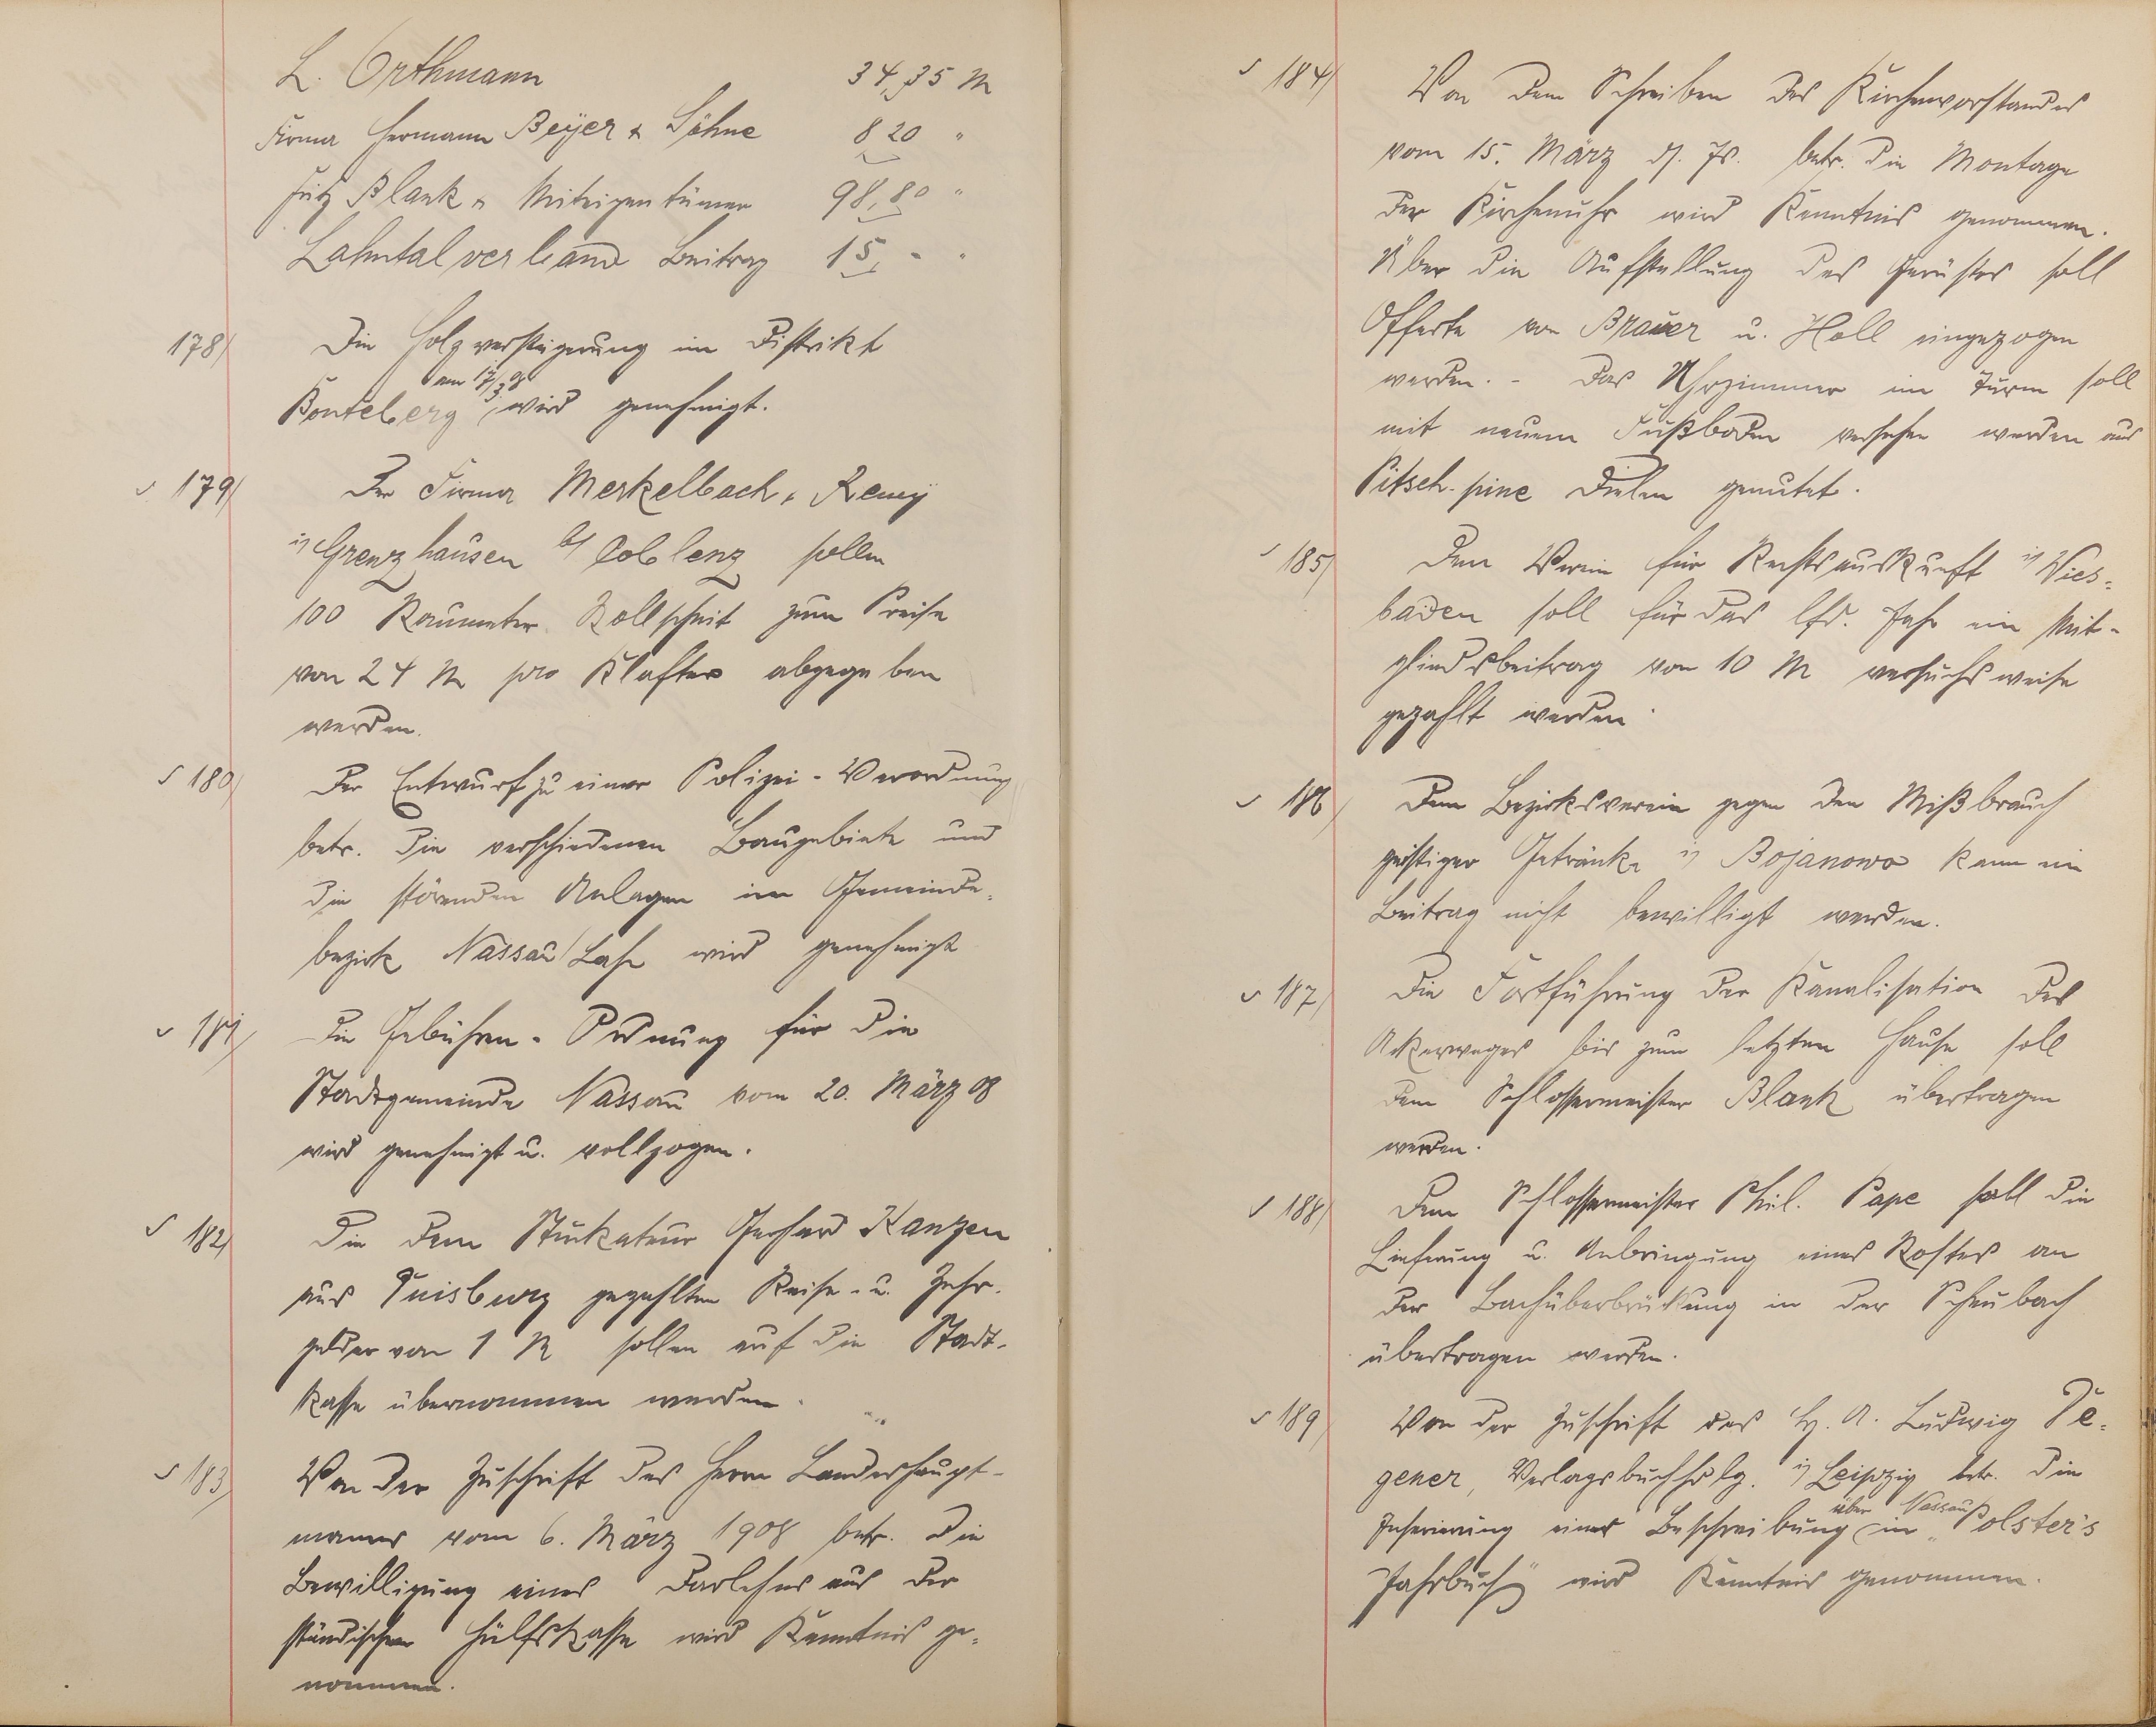 L. Orthmann 34,35 M
Firma Hermann Beyer & Söhne 8 20 "
Fritz Blank u Miteigentümer 98,80 "
Lahntalverband Beitrag 15,- "
178/ Die Holzversteigerung im Distrikt
am 17/3 08
Bonteberg wird genehmigt.
179/ Der Firma Merkelbach & Remy
in Grenzhausen b/ Coblenz sollen
100 Raummeter Rollscheit zum Preise
von 24 M pro Klafter abgegeben
werden.
180/ Der Entwurf zu einer Polizei-Verordnung
betr. die verschiedenen Baugebiete und
die störenden Anlagen im Gemeinde-
bezirk Nassau/Lahn wird genehmigt
181/ Die Gebühren-Ordnung für die
Stadtgemeinde Nassau vom 20. März 08
wird genehmigt u. vollzogen.
182/ Die dem Stuckateur Gerhard Kanzen
aus Duisburg gezahlten Reise- u. Zehr-
gelder von 1 M sollen auf die Stadt-
kasse übernommen werden.
183/ Von der Zuschrift des Herrn Landeshaupt-
manns vom 6. März 1908 betr. die
Bewilligung eines Darlehns aus der
ständischen Hülfskasse wird Kenntnis ge-
nommen.
184/ Von dem Schreiben des Kirchenvorstandes
vom 15. März d. Js. betr. die Montage
der Kirchenuhr wird Kenntnis genommen.
Über die Aufstellung des Gerüstes soll
Offerte von Brauer u. Holl eingezogen
werden. - Das Uhrzimmer im Turm soll
mit neuem Fußboden versehen werden aus
Pitsch-pine Dielen genutet.
185/ Dem Verein für Rechtsauskunft in Wies-
baden soll für das lfd. Jahr ein Mit-
gliedsbeitrag von 10 M versuchsweise
gezahlt werden.
186/ Dem Bezirksverein gegen den Mißbrauch
geistiger Getränke in Bojanowo kann ein
Beitrag nicht bewilligt werden.
187/ Die Fortführung der Kanalisation des
Ackerweges bis zum letzten Hause soll
dem Schlossermeister Blank übertragen
werden.
188/ Dem Schlossermeister Phil. Pape soll die
Lieferung u. Anbringung eines Rostes an
der Bachüberbrückung in der Scheubach
übertragen werden.
189/ Von der Zuschrift des H. A. Ludwig De-
gener, Verlagsbuchhdlg. in Leipzig betr. die
über Nassau
Inserierung einer Beschreibung in "Polster's
Jahrbuch" wird Kenntnis genommen.